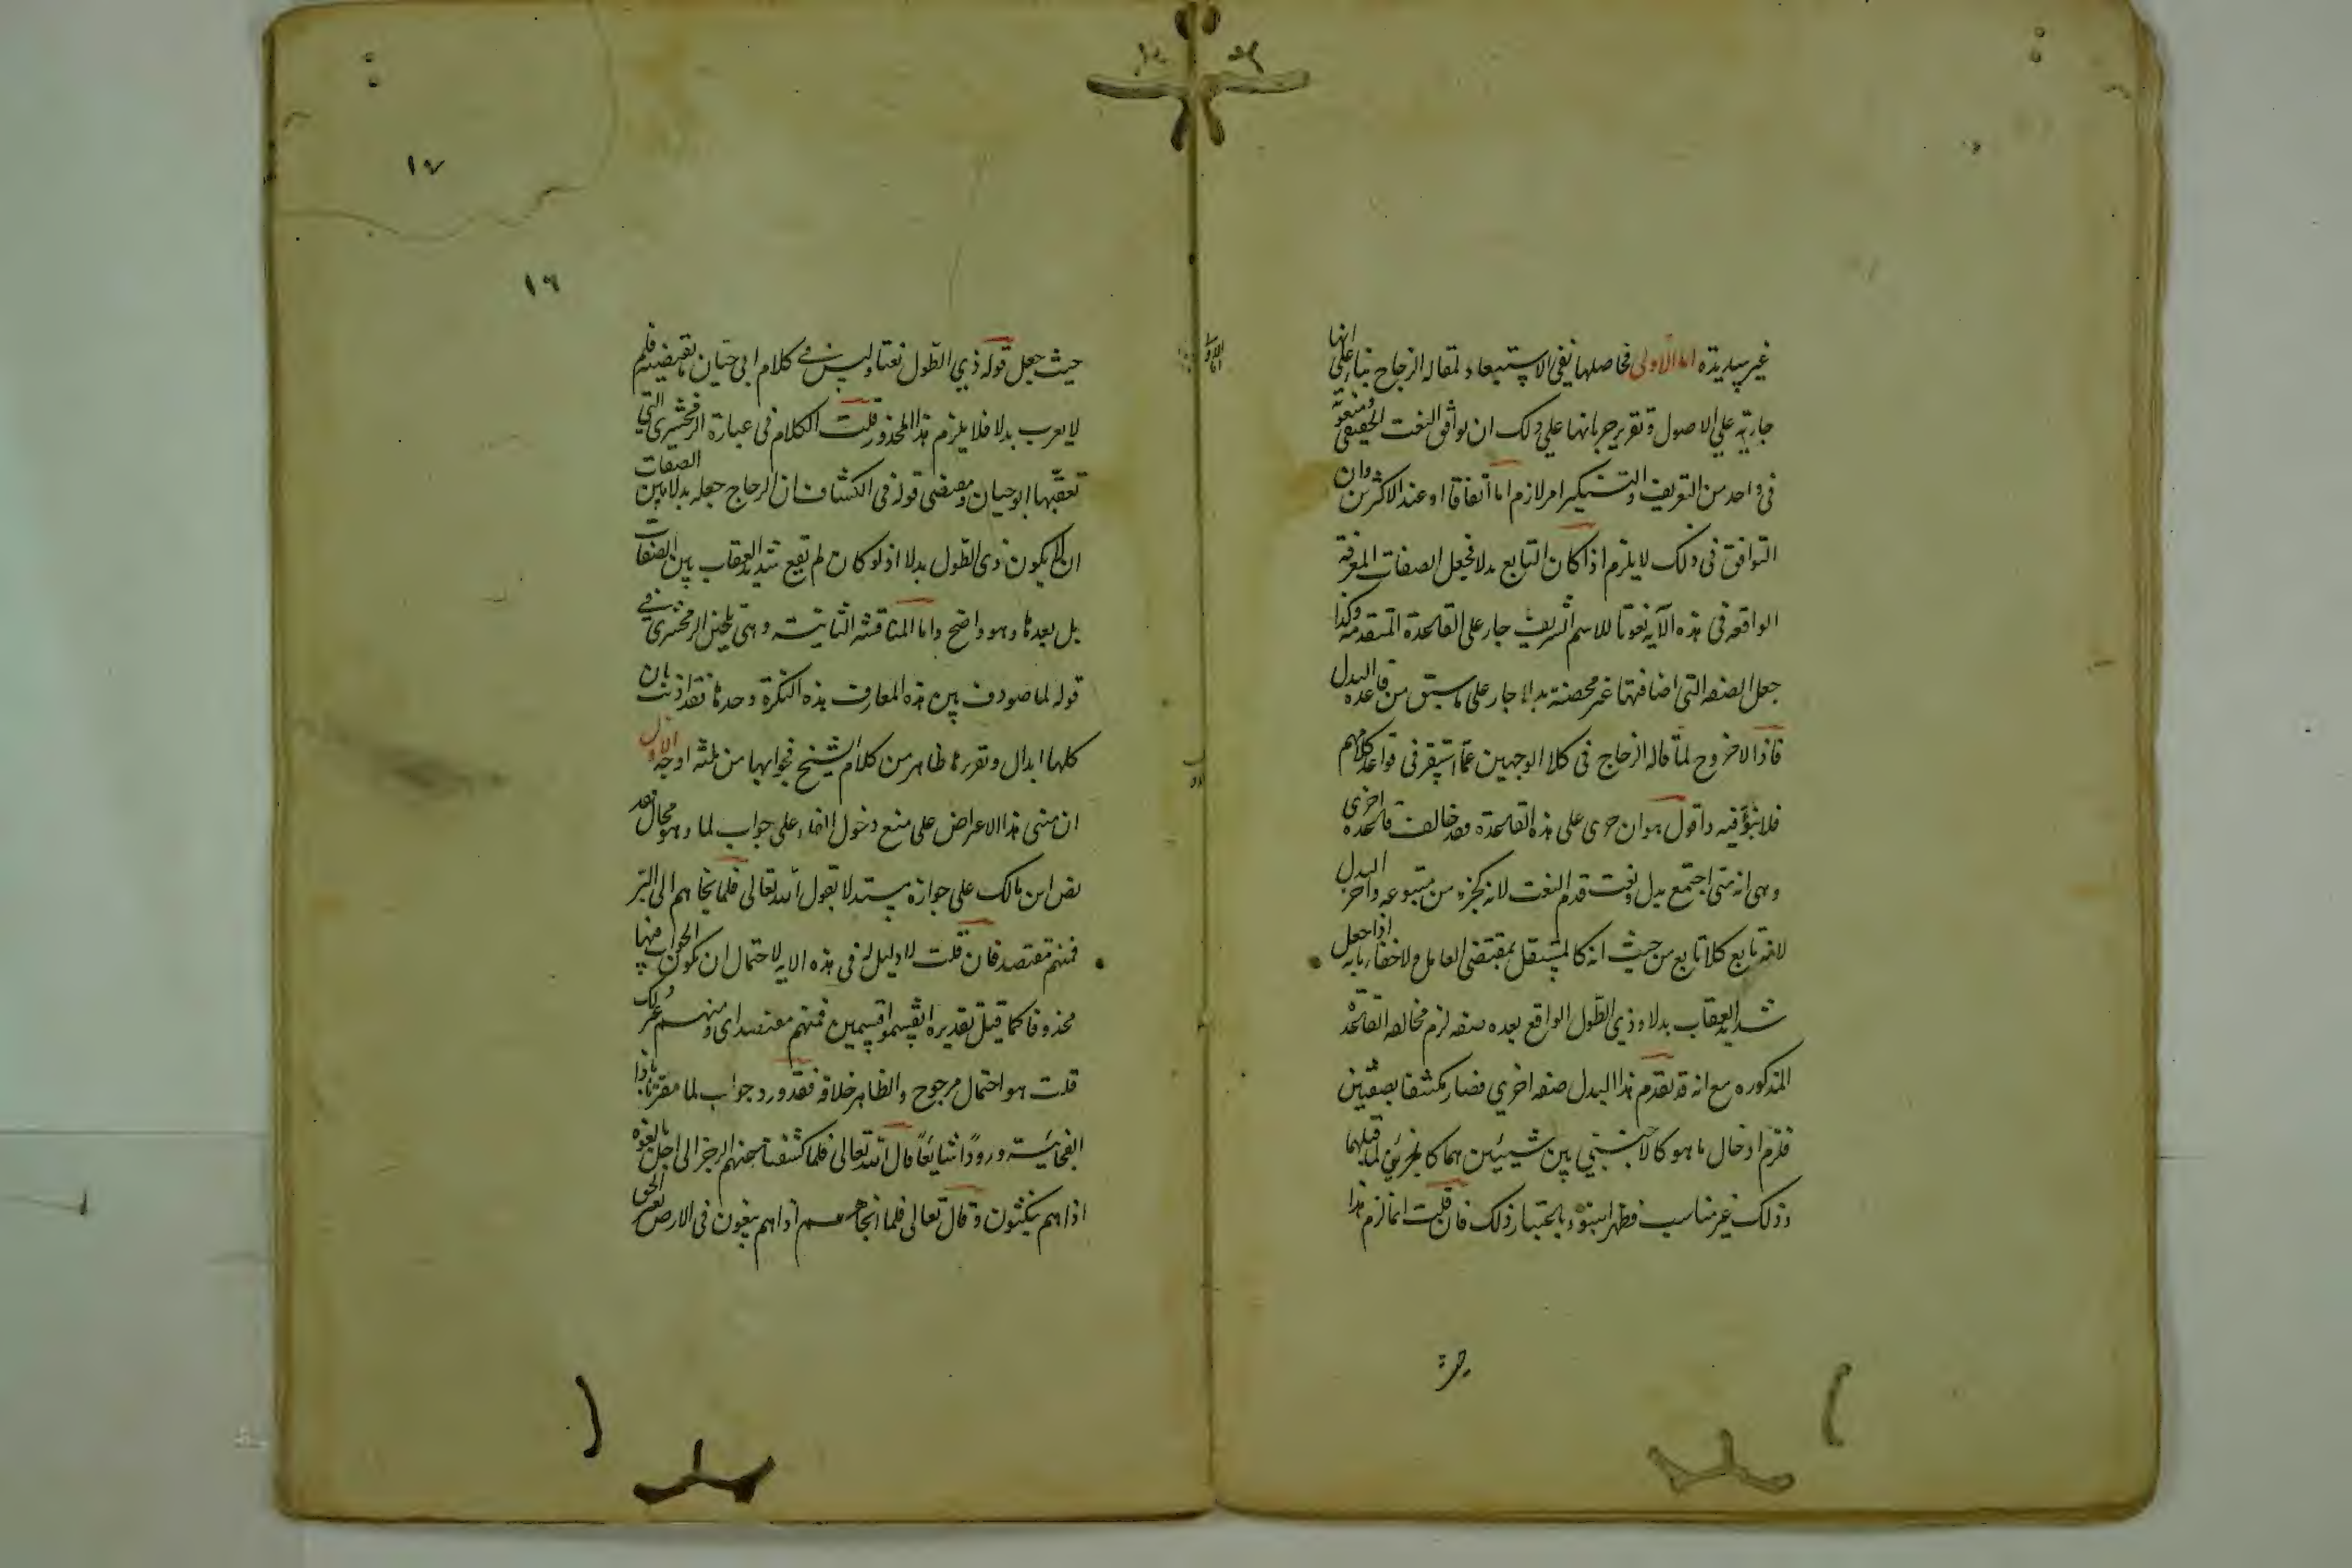 غير سديدة اما الاولى فحاصلها نفي الاستبعاد لمقالة الزجاج بناء على انها
جارية على الاصول وتقرير جريانها على ذلك ان توافق النعت الحقيقي ومنعوته
في واحد من التعريف والتنكير امر لازم اما اتفاقا او عند الاكثرين وان
التوافق في ذلك لا يلزم اذا كان التابع بدلا فجعل الصفات المعرفة
الواقعة في هذه الآية نعوتا للاسم الشريف جار على القاعدة المتقدمة وكذا
جعل الصفة التي اضافتها غير محضة بدلا جار على ما سبق من قاعدة البدل
فاذا لا خروج لما قاله الزجاج في كلا الوجهين عما استقر في قواعد كلامهم
فلا نبو فيه واقول هو ان جرى على هذه القاعدة فقد خالف قاعدة اخرى
وهي انه متى اجتمع بدل ونعت قدم النعت لانه كجزء من متبوعه واخر البدل
لانه تابع كلا تابع من حيث انه كالمستقل بمقتضى العامل ولا خفاء بانه اذا جعل
شديد العقاب بدلا وذي الطول الواقع بعده صفة لزم مخالفة القاعدة
المذكورة مع انه قد تقدم هذا البدل صفة اخرى فصار مكتنفا بصفتين
فلزم ادخال ما هو كالاجنبي بين شيئين هما كالجزئين لما قبلهما
وذلك غير مناسب فظهر النبو باعتبار ذلك فان قلت انما لزم هذا
حيث جعل قوله ذي الطول نعتا وليس في كلام ابي حيان ما يقتضيه فلم
لا يعرب بدلا فلا يلزم هذا المحذور قلت الكلام في عبارة الزمخشري التي
تعقبها ابو حيان ومقتضى قوله في الكشاف ان الزجاج جعله بدلا بين الصفات
ان لا يكون ذي الطول بدلا اذ لو كان لم تقع شديد العقاب بين الصفات
بل بعدها وهو واضح واما المناقشة الثانية وهي تلحين الزمخشري في
قوله لما صودف بين هذه المعارف هذه النكرة وحدها فقد اذنت بان
كلها ابدال وتقريرها ظاهر من كلام الشيخ فجوابها من ثلثة اوجه الاول
ان مبنى هذا الاعتراض على منع دخول الفاء على جواب لما وهو محال فقد
نص ابن مالك على جوازه مستدلا بقول الله تعالى فلما نجاهم الى البر
فمنهم مقتصد فان قلت لا دليل له في هذه الاية لاحتمال ان يكون الجواب فيها
محذوفا كما قيل تقديره انقسموا قسمين فمنهم مقتصد اي ومنهم غير ذلك
قلت هو احتمال مرجوح والظاهر خلافه فقد ورد جواب لما مقرنا باذا
الفجائية ورودا شايعا قال الله تعالى فلما كشفنا عنهم الرجز الى اجل هم بالغوه
اذا هم ينكثون وقال تعالى فلما انجاهم اذا هم يبغون في الارض بغير الحق
١٧
١٦